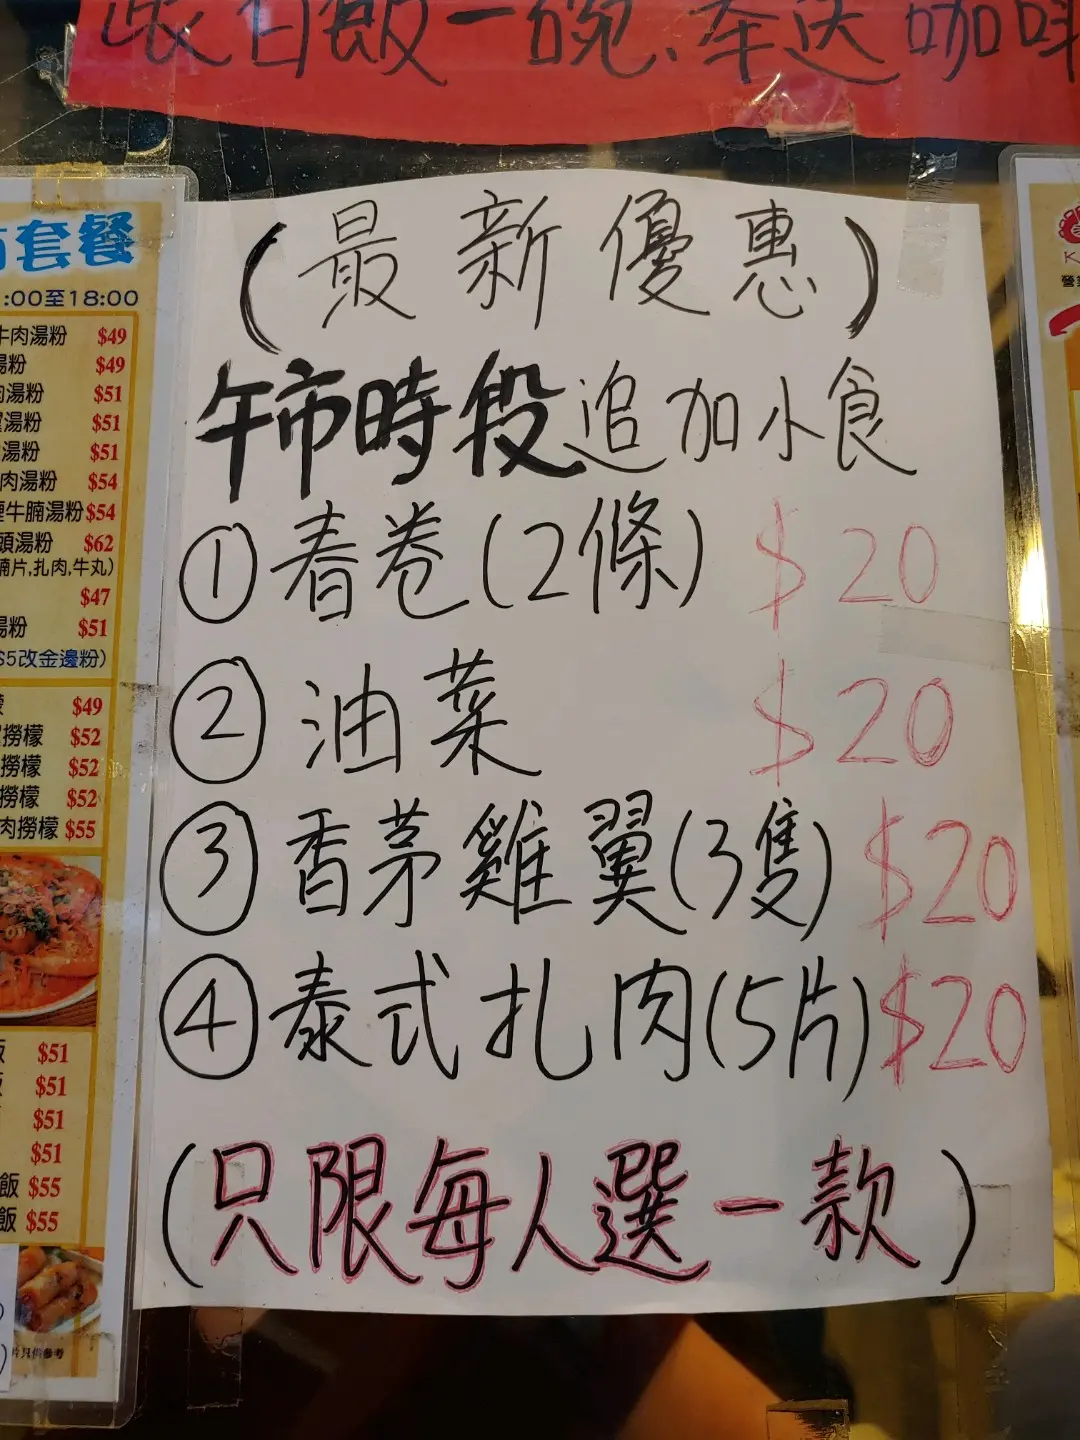 跟白飯一碗、奉送咖啡
(最新優惠)
午市時段追加小食
①春卷(2條) $20
②油菜 $20
③香茅雞翼(3隻) $20
④泰式扎肉(5片) $20
(只限每人選一款)
套餐
:00至18:00
牛肉湯粉 $49
湯粉 $49
湯粉 $51
湯粉 $51
湯粉 $51
肉湯粉 $54
牛腩湯粉 $54
頭湯粉 $62
腩片,扎肉,牛丸)
$47
湯粉 $51
$5改金邊粉)
$49
撈檬 $52
撈檬 $52
撈檬 $52
肉撈檬 $55
飯 $51
飯 $51
$51
$51
飯 $55
飯 $55
片只供參考
K
營